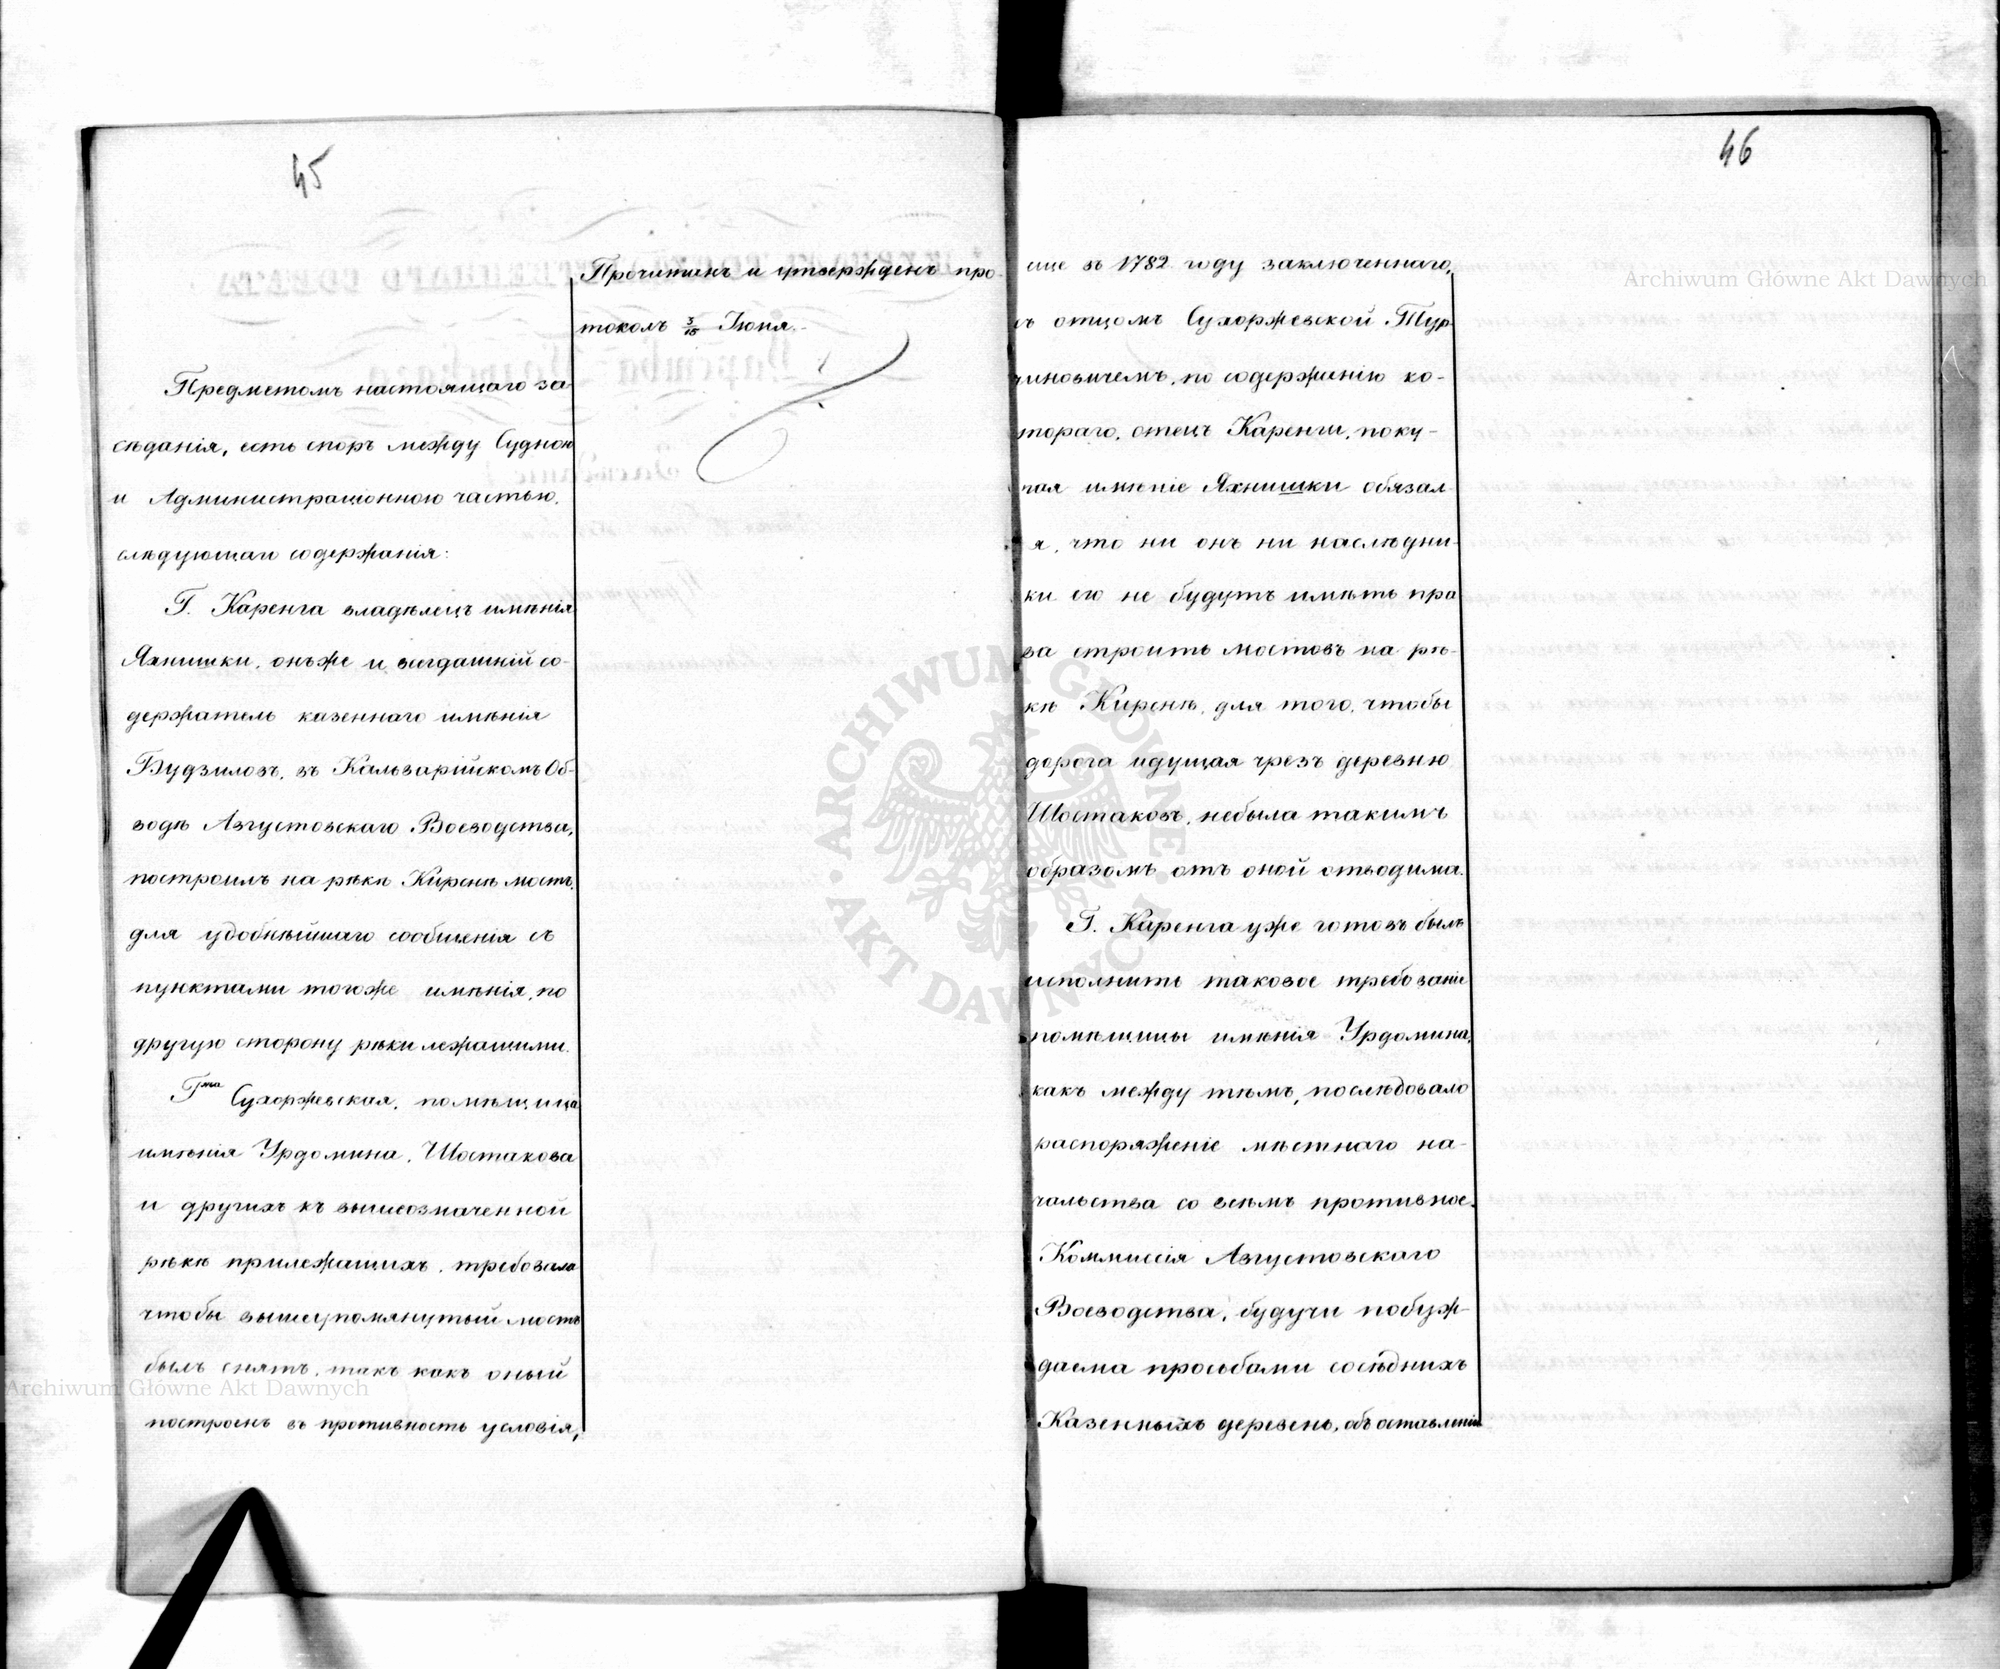 45
Прочитанъ и утвержденъ про-
токолъ 3/15 Іюня.
Предметомъ настоящаго за-
сѣданія, есть споръ между Судною
и Администраціонною частью,
слѣдующаго содержанія:
Г. Каренга владѣлецъ имѣнія
Яхнишки, онъже и всегдашній со-
держатель казеннаго имѣнія
Будзиловъ, въ Кальварійскомъ Об-
водѣ Августовскаго Воеводства,
построилъ на рѣкѣ Киренѣ мостъ,
для удобнѣйшаго сообщенія съ
пунктами тогоже имѣнія, по
другую сторону рѣки лежащими.
Гжа Сухоржевская, помѣщица
имѣнія Урдомина, Шостакова
и другихъ къ вышеозначенной
рѣкѣ прилежащихъ, требовала
чтобы вышеупомянутый мостъ
былъ снятъ, такъ какъ оный
построенъ въ противность условія,
46
еще въ 1782 году заключеннаго,
съ отцомъ Сухоржевской Тур-
чиновичемъ, по содержанію ко-
тораго, отецъ Каренги, поку-
пая имѣніе Яхнишки обязал-
ся, что ни онъ ни наслѣдни-
ки его не будутъ имѣть пра
ва строить мостовъ на рѣ-
кѣ Киренѣ, для того, чтобы
дорога идущая чрезъ деревню
Шостаковъ, небыла такимъ
образомъ отъ оной отводима.
Г. Каренга уже готовъ былъ
исполнить таковое требованіе
помѣщицы имѣнія Урдомина,
какъ между тѣмъ, послѣдовало
распоряженіе мѣстнаго на-
чальства со всѣмъ противное.
Коммиссія Августовскаго
Воеводства, будучи побуж-
даема просьбами сосѣднихъ
Казенныхъ деревень, объ оставленіи
Archiwum Główne Akt Dawnych
Archiwum Główne Akt Dawnych
ARCHIWUM GŁÓWNE AKT DAWNYCH